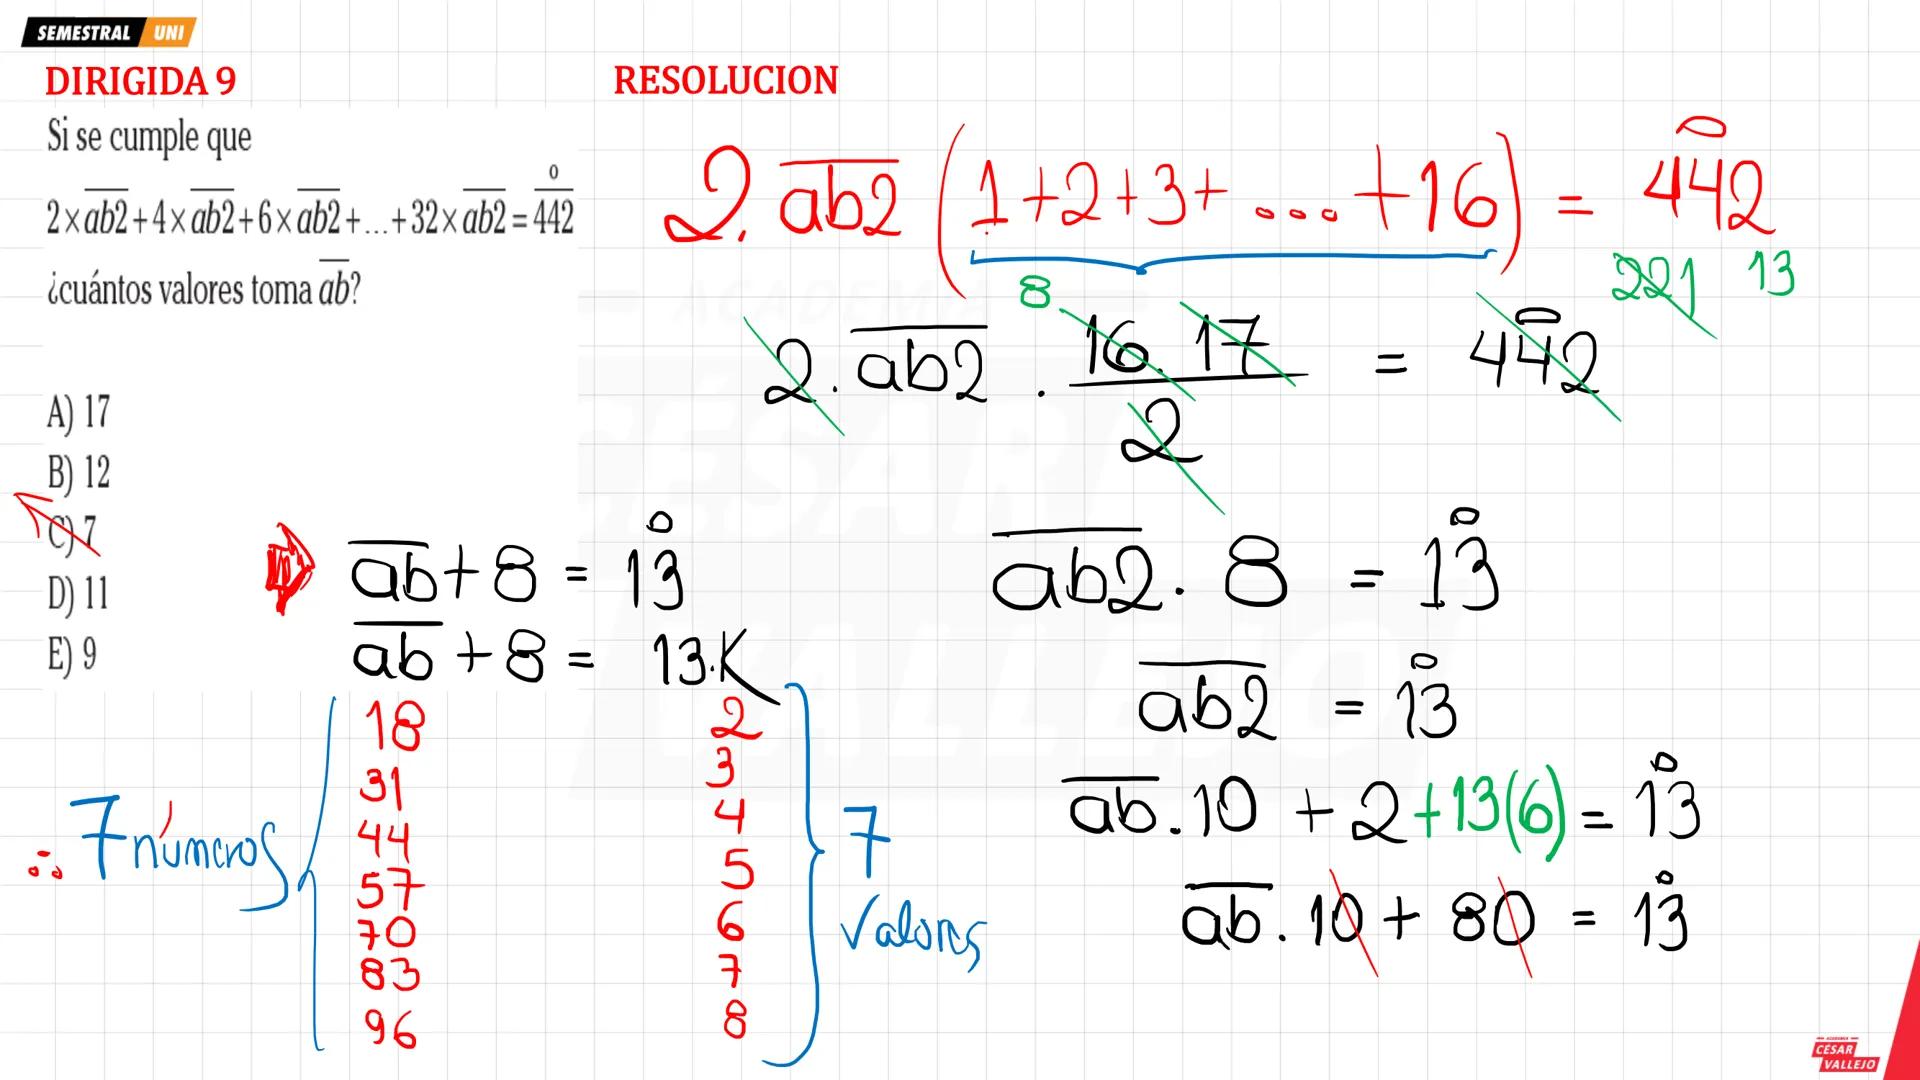 SEMESTRAL UNI
DIRIGIDA 9
Si se cumple que
2×a̅b̅2̅+4×a̅b̅2̅+6×a̅b̅2̅+...+32×a̅b̅2̅=4̅4̊̅2̅
¿cuántos valores toma a̅b̅?
A) 17
B) 12
C) 7
D) 11
E) 9
RESOLUCION
2.a̅b̅2̅(1+2+3+...+16) = 44̊2
8
221 13
2.a̅b̅2̅.16.17/2 = 44̊2
a̅b̅2̅.8 = 13̊
a̅b̅2̅ = 13̊
a̅b̅.10+2+13(6)=13̊
a̅b̅.10+80=13̊
a̅b̅+8=13̊
a̅b̅+8=13.K
18 2
31 3
44 4
57 5
70 6
83 7
96 8
7 valores
∴ 7 números
ACADEMIA
CÉSAR
VALLEJO
ACADEMIA
CÉSAR
VALLEJO